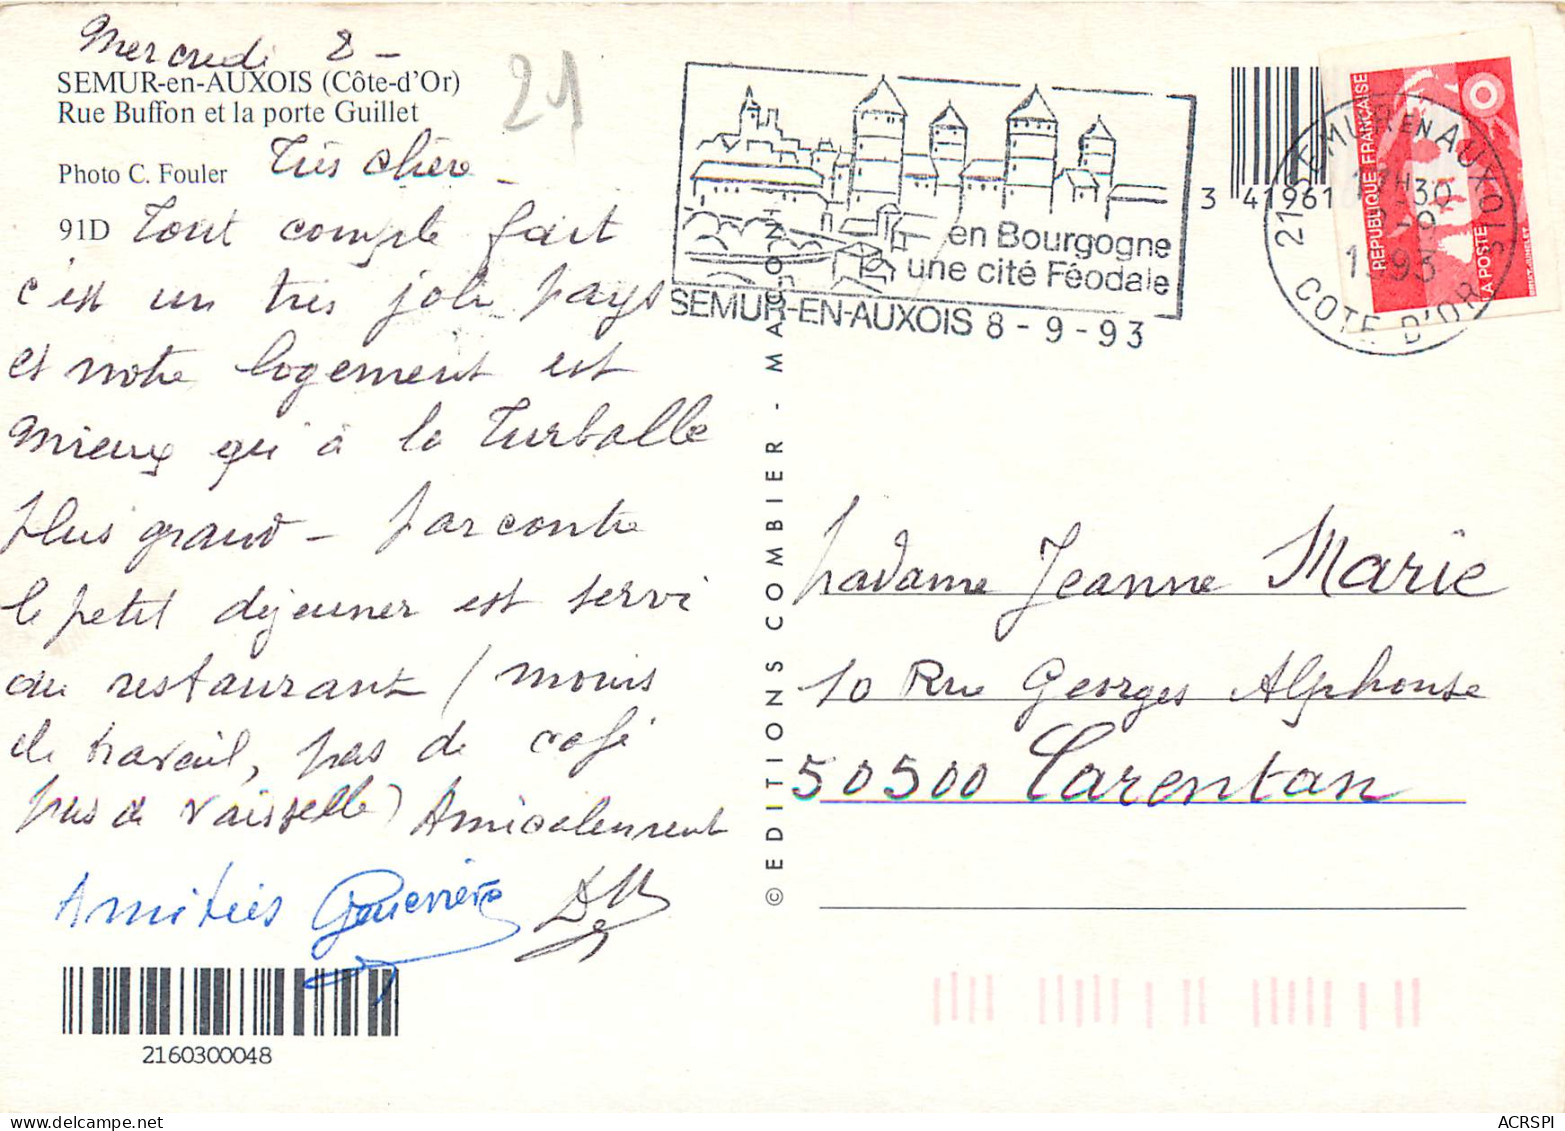 Mercredi 8 -
SEMUR-en-AUXOIS (Côte-d'Or)
Rue Buffon et la porte Guillet
21
Photo C. Fouler
Très chère
91D
Tout compte fait
c'est un très joli pays
et notre logement est
mieux qu'à la Turballe
plus grand - par contre
le petit déjeuner est servi
au restaurant (moins
de travail, pas de café
pas de vaisselle) Amicalement
Amitiés Geneviève
2160300048
© EDITIONS COMBIER - MACON
en Bourgogne
une cité Féodale
SEMUR-EN-AUXOIS 8 - 9 - 93
3 41961
21 SEMUR EN AUXOIS
H30
1993
COTE D'OR
REPUBLIQUE FRANÇAISE
LA POSTE
Madame Jeanne Marie
10 Rue Georges Alphonse
50500 Carentan
ACRSPI